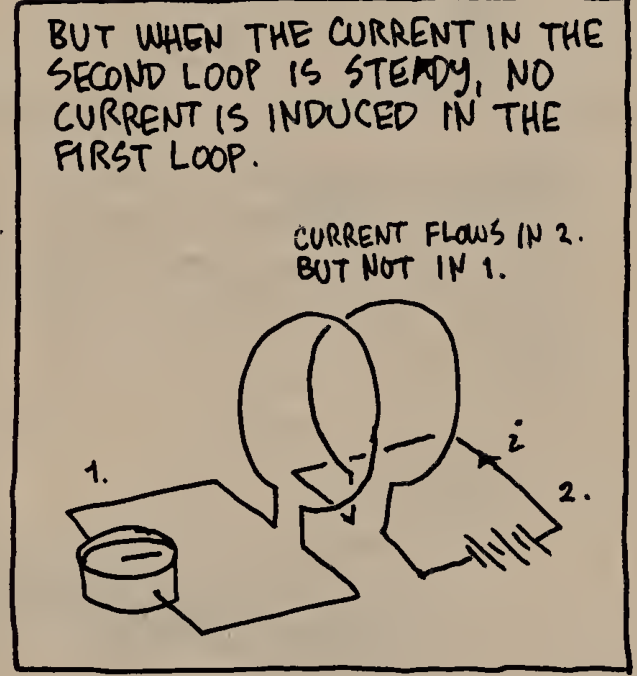 BUT WHEN THE CURRENT IN THE
SECOND LOOP IS STEADY, NO
CURRENT IS INDUCED IN THE
FIRST LOOP.
CURRENT FLOWS IN 2.
BUT NOT IN 1.
1.
i
2.